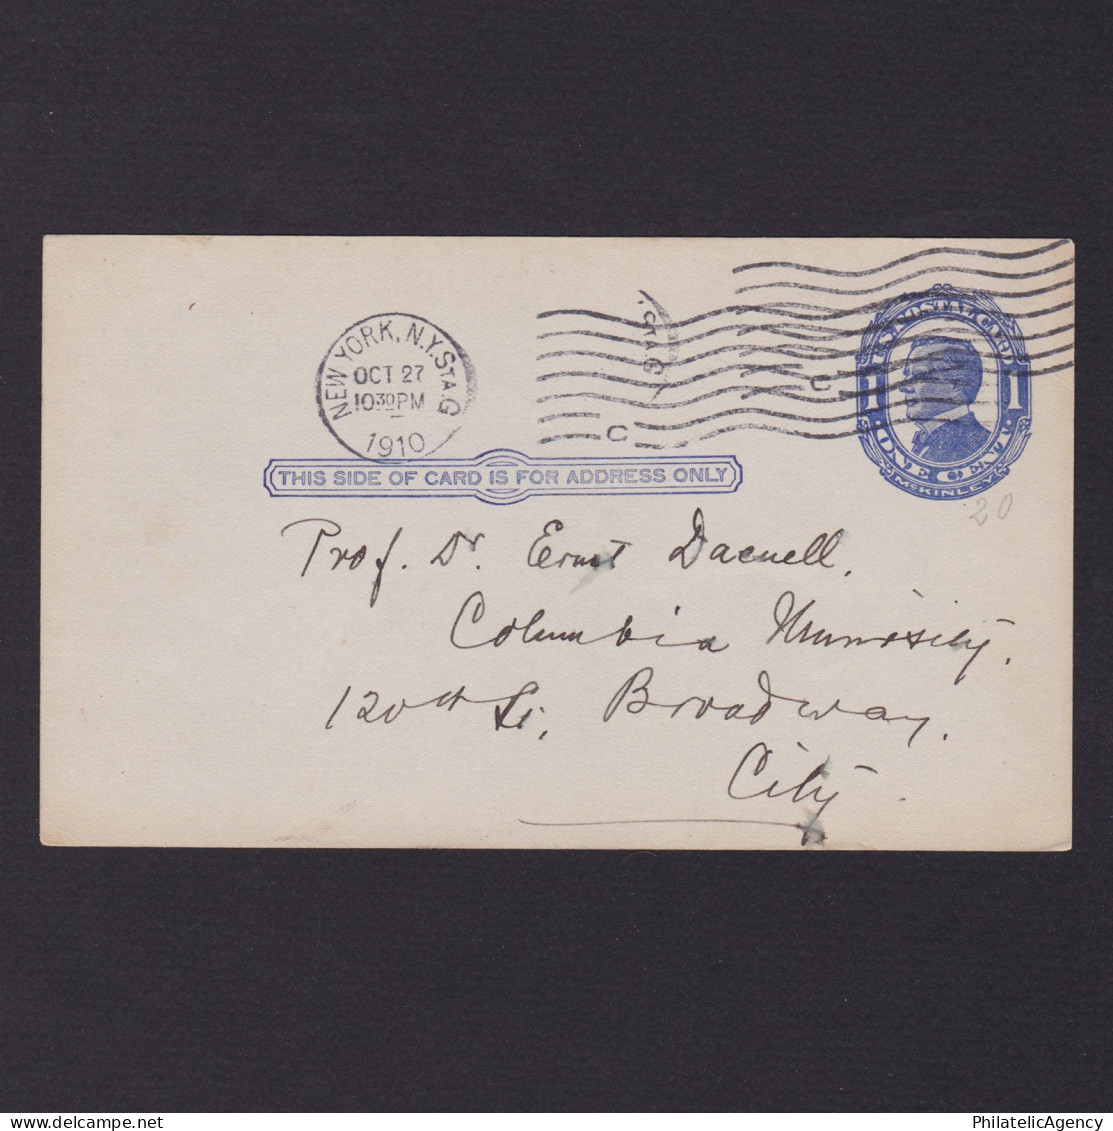 NEW YORK, N.Y. STA. G
OCT 27
10 30 PM
1910
C
STA. G
C
U.S. POSTAL CARD
1 1
ONE CENT
McKINLEY
20
THIS SIDE OF CARD IS FOR ADDRESS ONLY
Prof. Dr. Ernst Daenell.
Columbia University.
120th St. Broadway.
City.
PhilatelicAgency